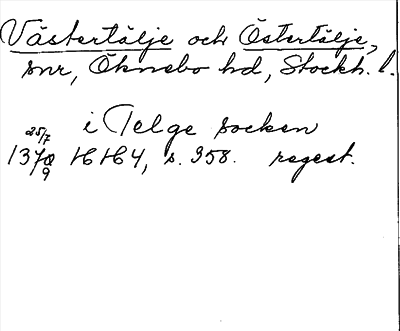 Västertälje och Östertälje,
snr, Öknebo hd, Stockh. l.
i Telge socken
25/7
1370 HH4, s. 358. regest.
9